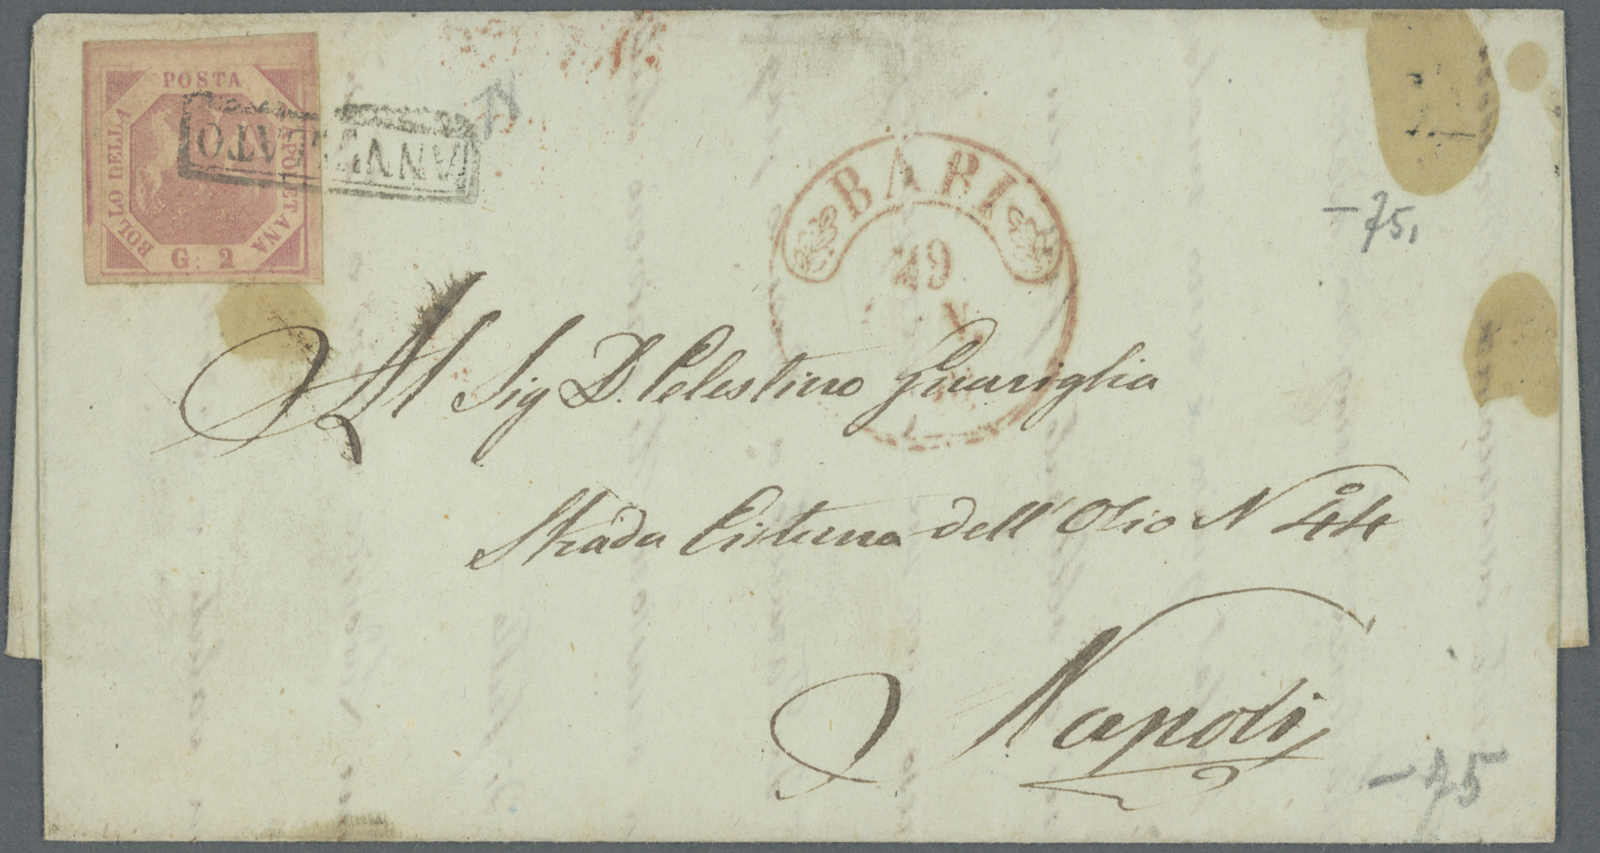 POSTA
BOLLO DELLA
NAPOLETANA
G. 2
ANNULLATO
BARI
29
-75,
Al Sig D. Celestino Guariglia
Strada Cisterna dell' Olio No 44
Napoli
-75